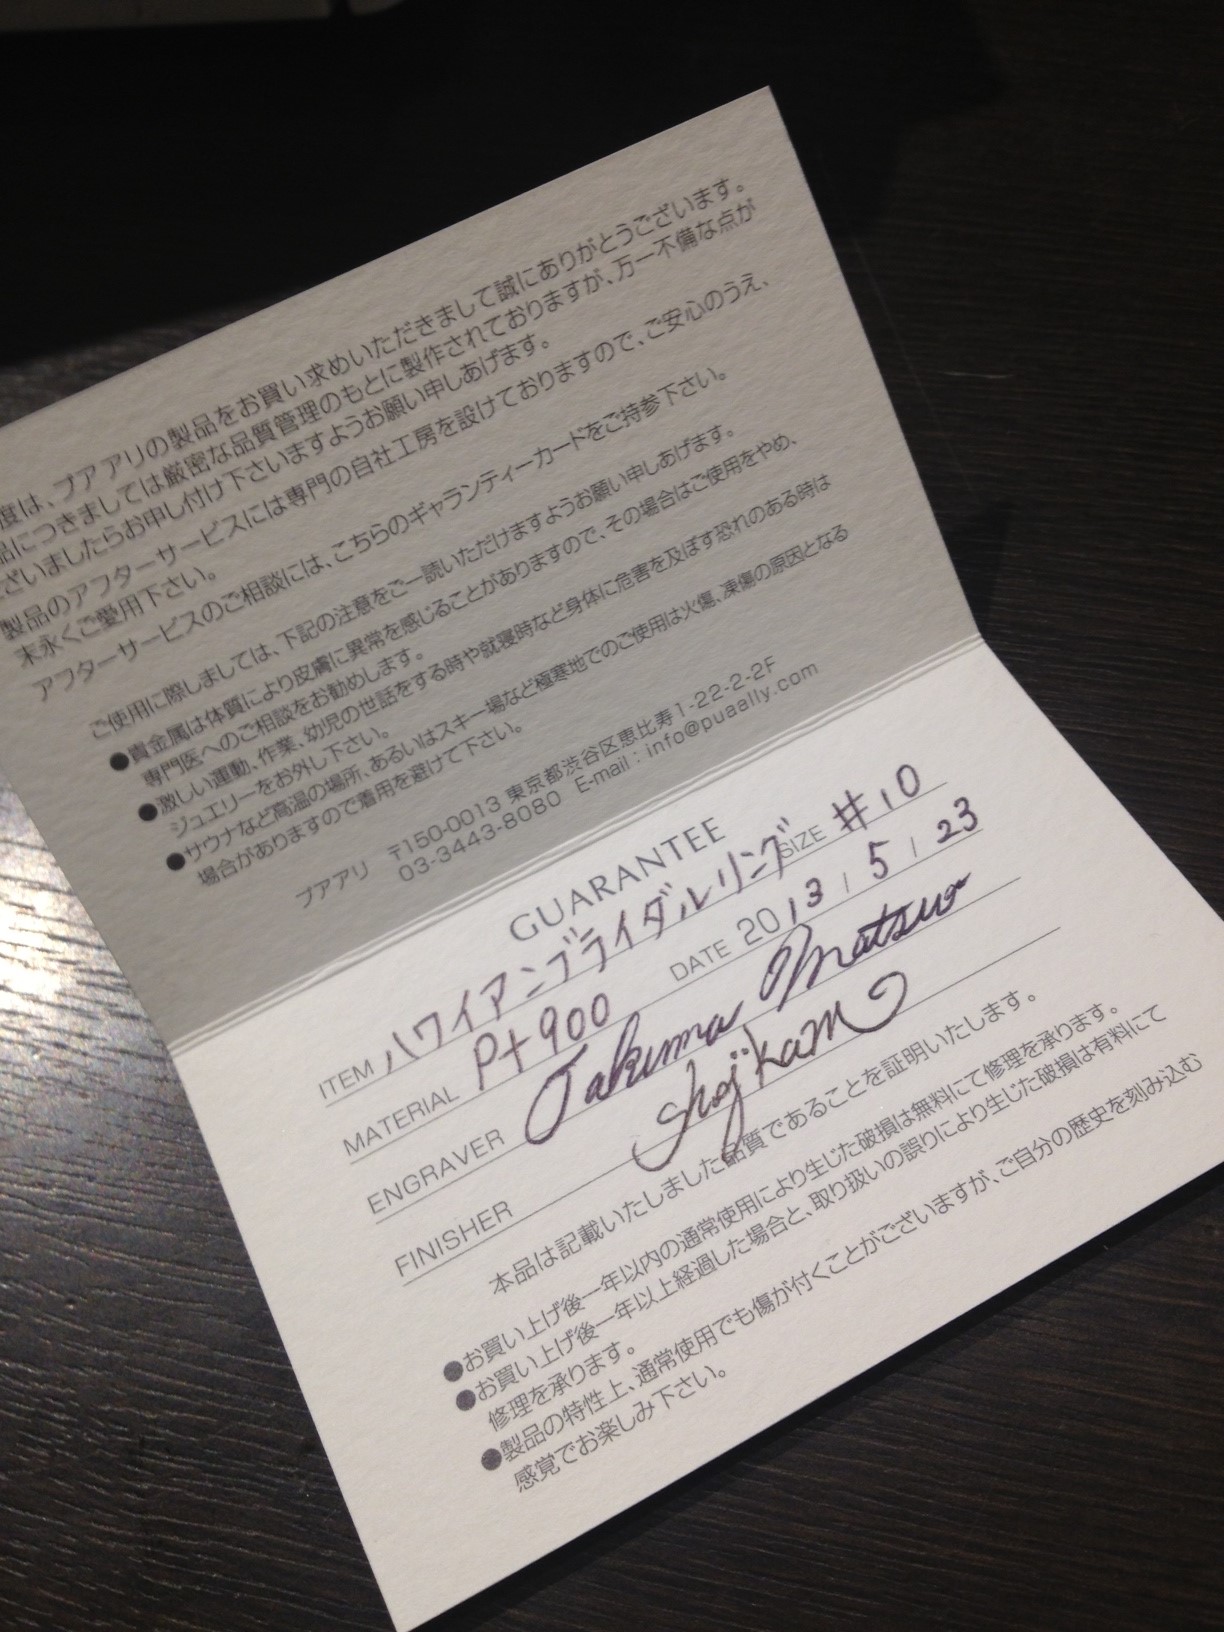 度は、プアアリの製品をお買い求めいただきまして誠にありがとうございます。
品につきましては厳密な品質管理のもとに製作されておりますが、万一不備な点が
ざいましたらお申し付け下さいますようお願い申しあげます。
製品のアフターサービスには専門の自社工房を設けておりますので、ご安心のうえ、
末永くご愛用下さい。
アフターサービスのご相談には、こちらのギャランティーカードをご持参下さい。
ご使用に際しましては、下記の注意をご一読いただけますようお願い申しあげます。
●貴金属は体質により皮膚に異常を感じることがありますので、その場合はご使用をやめ、
専門医へのご相談をお勧めします。
●激しい運動、作業、幼児の世話をする時や就寝時など身体に危害を及ぼす恐れのある時は
ジュエリーをお外し下さい。
●サウナなど高温の場所、あるいはスキー場など極寒地でのご使用は火傷、凍傷の原因となる
場合がありますので着用を避けて下さい。
プアアリ 〒150-0013 東京都渋谷区恵比寿1-22-2-2F
03-3443-8080 E-mail : info@puaally.com
GUARANTEE
ITEM ハワイアンブライダルリング SIZE #10
MATERIAL Pt900 DATE 2013 / 5 / 23
ENGRAVER Takuma Matsuo
FINISHER
本品は記載いたしました品質であることを証明いたします。
●お買い上げ後一年以内の通常使用により生じた破損は無料にて修理を承ります。
●お買い上げ後一年以上経過した場合と、取り扱いの誤りにより生じた破損は有料にて
修理を承ります。
●製品の特性上、通常使用でも傷が付くことがございますが、ご自分の歴史を刻み込む
感覚でお楽しみ下さい。